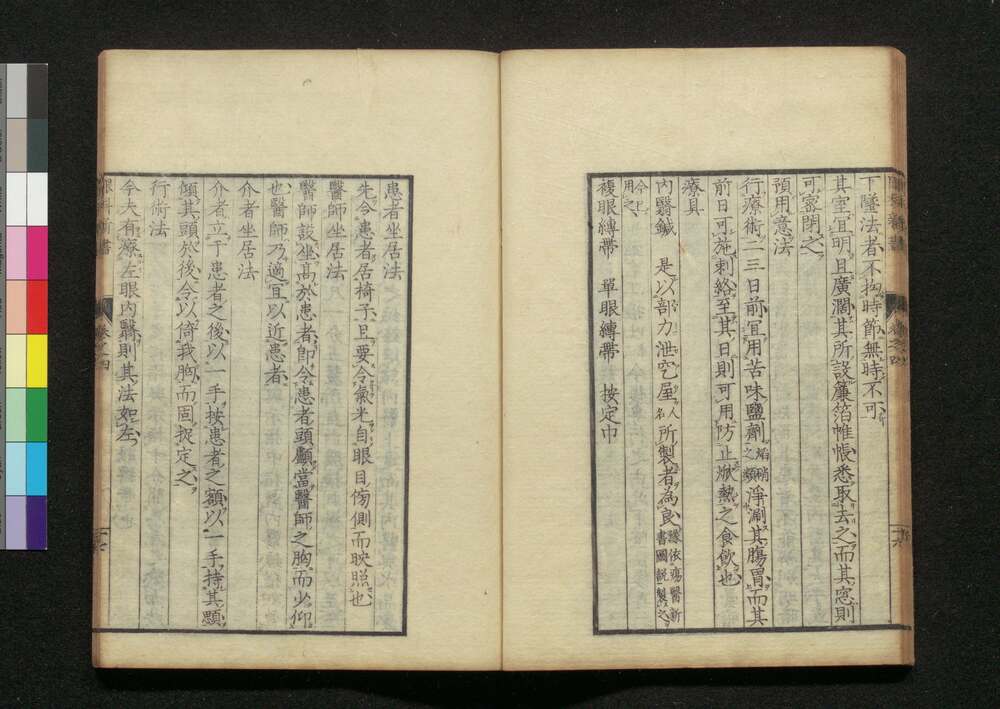 下墜法者不拘時節無時不可
其室宜明且廣濶其所設簾箔帷帳悉取去之而其窓則
可密閉之
預用意法
行療術二三日前宜用苦味鹽劑焰硝之類淨涮其腸胃而其
前日可施刺絡至其日則可用防止焮熱之食飲也
療具
內翳鍼 是以部力泄冗屋人名所製者為良豫依瘍醫新書圖說製之
今上用之
複眼縛帶 單眼縛帶 按定巾
患者坐居法
先令患者居椅子且要令氣光自眼目傍側而映照也
醫師坐居法
醫師設坐高於患者即令患者頭顱當醫師之胸而少仰
也醫師乃適宜以近患者
介者坐居法
介者立于患者之後以一手按患者之額以一手持其顋
傾其頭於後令以倚我胸而固捉定之
行術法
今夫有療左眼內翳則其法如左
眼科新書 卷之四